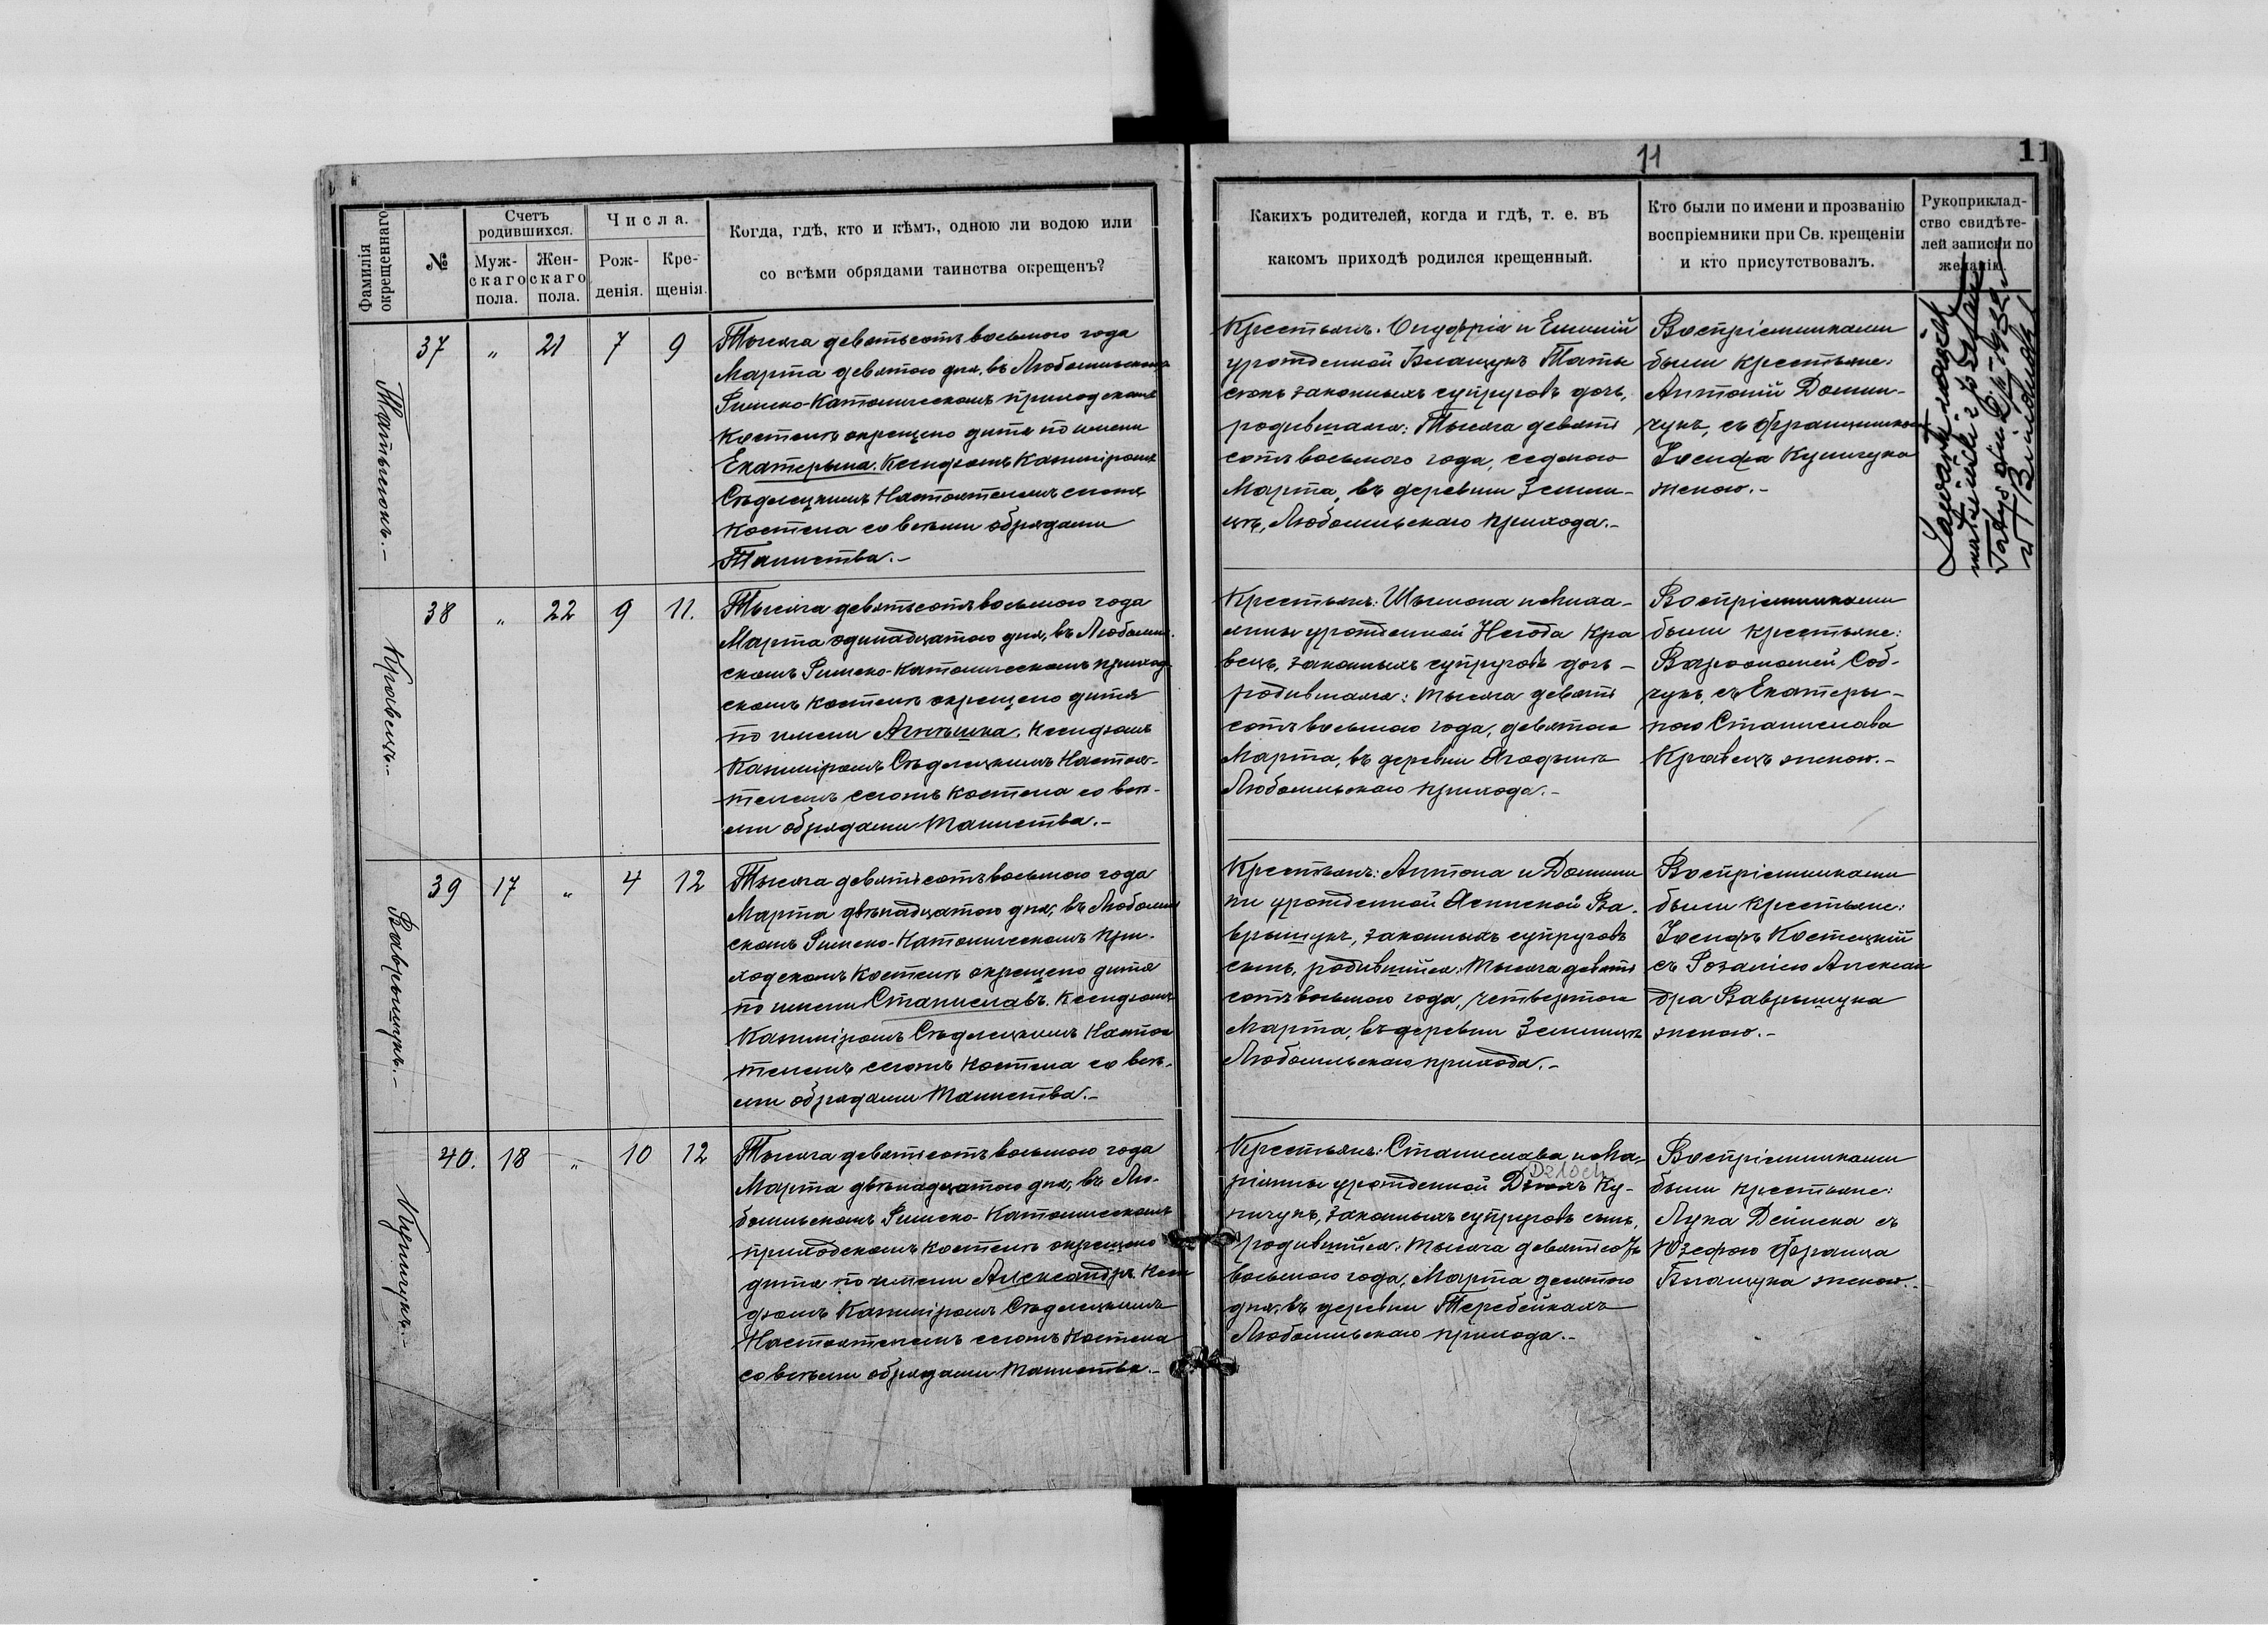 11
11
Фамилія окрещеннаго
№
Счетъ родившихся.
Муж-скаго пола.
Жен-скаго пола.
Числа.
Рож-денія.
Кре-щенія.
Когда, гдѣ, кто и кѣмъ, одною ли водою или
со всѣми обрядами таинства окрещенъ?
Какихъ родителей, когда и гдѣ, т. е. въ
какомъ приходѣ родился крещенный.
Кто были по имени и прозванію
воспріемники при Св. крещеніи
и кто присутствовалъ.
Рукоприклад-
ство свидѣте-
лей записки по
желанію.
37 „ 21 7 9
Тысяча девятьсотъ восьмого года
Марта девятого дня, въ Любомльскомъ
Римско-Католическомъ приходскомъ
костелѣ окрещено дитя по имени
Екатерына. Ксендзомъ Казиміромъ
Сѣдлецкимъ Настоятелемъ сегожъ
костела со всѣми обрядами
Таинства.-
Крестьянъ: Онуфрія и
урожденной Блащукъ
законныхъ супруговъ дочь,
родившаяся: Тысяча девять
сотъ восьмого года, седьмого
Марта, въ деревни Земли-
цѣ, Любомльскаго прихода.-
Воспріемниками
были крестьяне:
Антоній
съ Францишкою
Іосифа Купчука
женою.-
38 „ 22 9 11.
Кравецъ.-
Тысяча девятьсотъ восьмого года
Марта одинадцатого дня, въ Любомль-
скомъ Римско-Католическомъ приход-
скомъ костелѣ окрещено дитя
по имени Агнѣшка. Ксендзомъ
Казиміромъ Сѣдлецкимъ Настоя-
телемъ сегожъ костела со всѣ-
ми обрядами Таинства.-
Крестьянъ: Шымона и
урожденной Негода Кра
вецъ, законныхъ супруговъ дочь-
родившаяся: тысяча девять
сотъ восьмого года, девятого
Марта, въ деревни Ягодынѣ
Любомльскаго прихода.-
Воспріемниками
были крестьяне:
Варѳоломей Соб-
чукъ, съ Екатеры-
ною Станислава
Кравецъ женою.-
39 17 „ 4 12
Ваврыщукъ.-
Тысяча девятьсотъ восьмого года
Марта двѣнадцатого дня, въ Любомль
скомъ Римско-Католическомъ при-
ходскомъ костелѣ окрещено дитя
по имени Станиславъ. Ксендзомъ
Казиміромъ Сѣдлецкимъ Настоя
телемъ сегожъ костела со всѣ-
ми обрядами Таинства.-
Крестьянъ: Антона и Домини
ки урожденной Ва-
врыщукъ, законныхъ супруговъ
сынъ, родившійся: тысяча девять
сотъ восьмого года, четвертого
Марта, въ деревни Землицѣ
Любомльскаго прихода.-
Воспріемниками
были крестьяне:
Іосифъ Костецкій
съ Розалію Алексан
дра Ваврыщука
женою.-
40. 18 „ 10 12
Купчукъ.-
Тысяча девятьсотъ восьмого года
Марта двѣнадцатого дня, въ Лю-
бомльскомъ Римско-Католическомъ
приходскомъ костелѣ окрещено
дитя по имени Александръ. Ксен
дзомъ Казиміромъ Сѣдлецкимъ
Настоятелемъ сегожъ костела
со всѣми обрядами Таинства.-
Крестьянъ: Станислава и Ма-
ріянны урожденной Ку-
пчукъ, законныхъ супруговъ сынъ,
родившійся: тысяча девятьсотъ
восьмого года, Марта десятого
дня, въ деревни Теребейкахъ
Любомльскаго прихода.-
Воспріемниками
были крестьяне:
Лука Дейнека съ
Юзефою Франца
Блащука женою.-